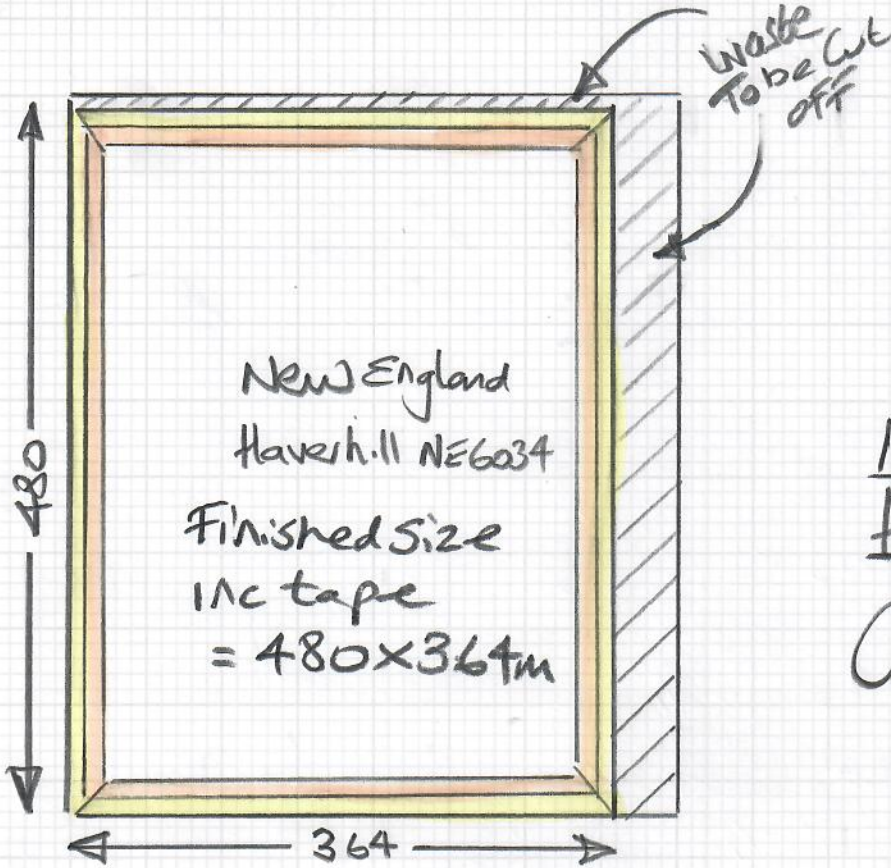 Waste
To be Cut
OFF
480
New England
Haverhill NE6034
Finished size
inc tape
= 480x364m
364